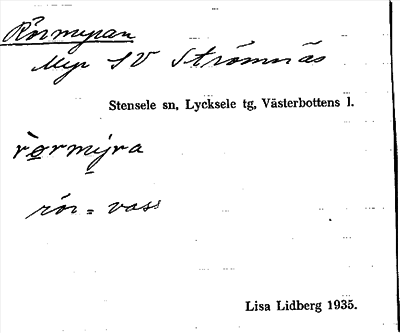 Rörmyran
Myr SV Strömnäs
Stensele sn, Lycksele tg, Västerbottens l.
rör = vass
Lisa Lidberg 1935.